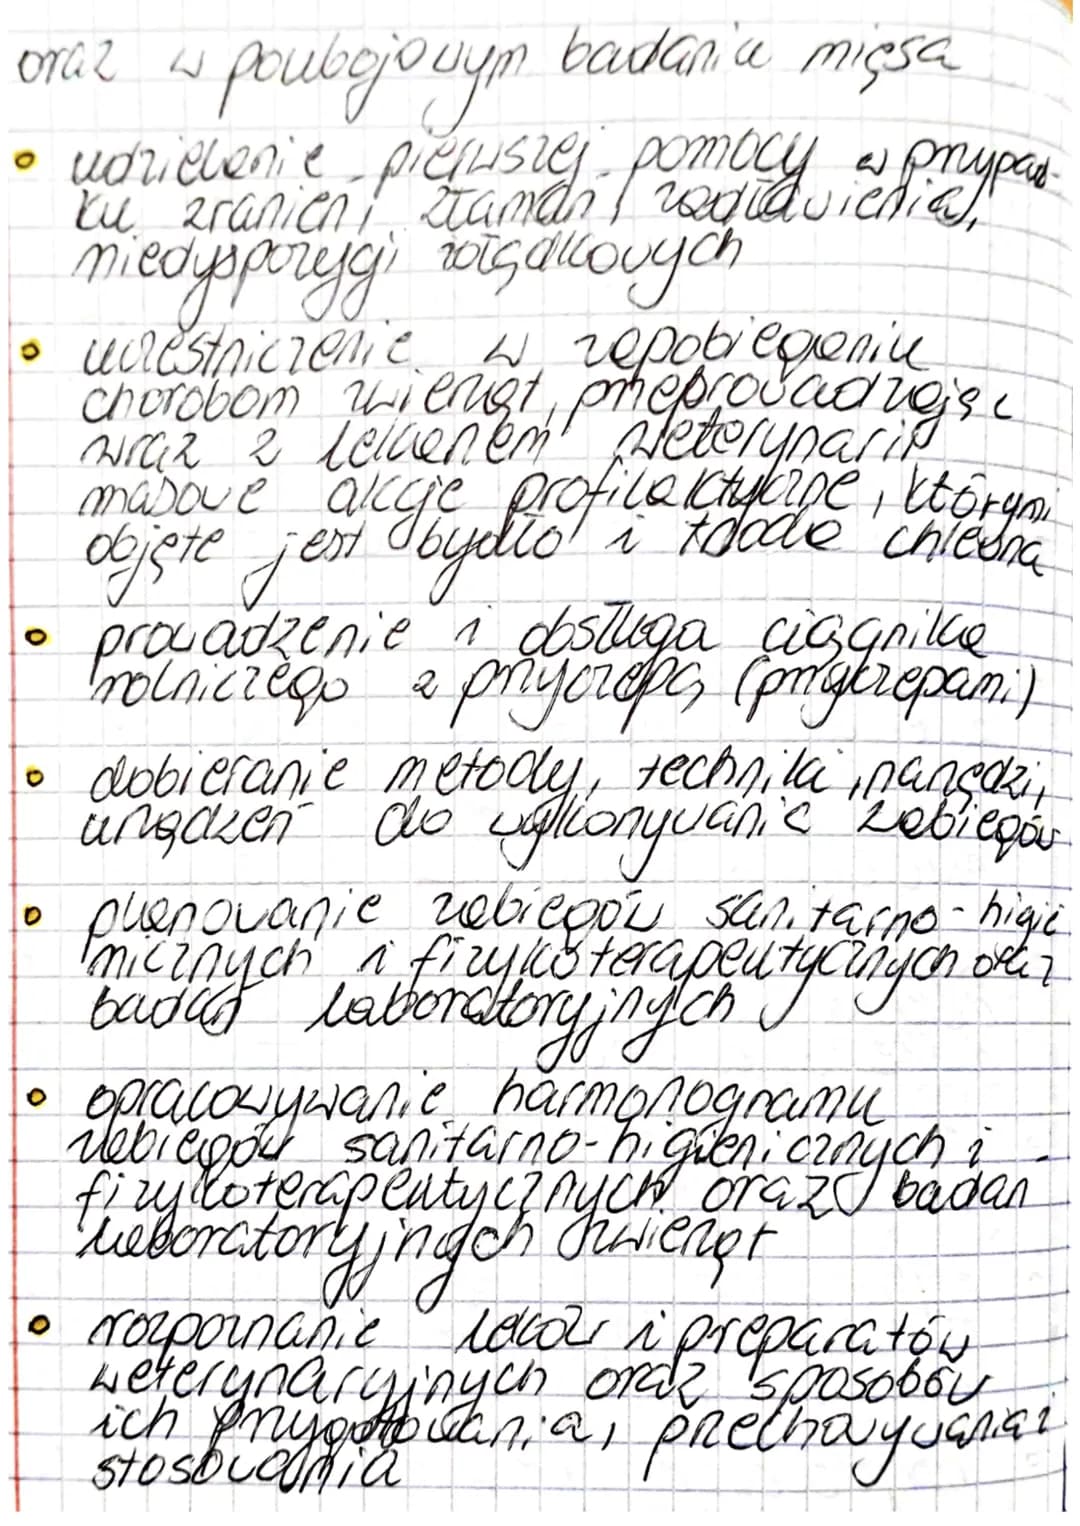 oraz w poubojowym badaniu mięsa
udzielenie pierwszej pomocy w przypad-
ku zranień, złamań, zadławienia,
niedyspozycji żołądkowych
uczestniczenie w zapobieganiu
chorobom zwierząt, przeprowadzając
wraz z lekarzem weterynarii
masowe akcje profilaktyczne, którymi
objęte jest bydło i trzoda chlewna
prowadzenie i obsługa ciągnika
rolniczego z przyczepą (przyczepami)
dobieranie metody, techniki, narzędzi,
urządzeń do wykonywania zabiegów
planowanie zabiegów sanitarno-higie
nicznych i fizykoterapeutycznych oraz
badań laboratoryjnych
opracowywanie harmonogramu
zabiegów sanitarno-higienicznych i
fizykoterapeutycznych oraz badań
laboratoryjnych zwierząt
rozpoznanie leków i preparatów
weterynaryjnych oraz sposobów
ich przygotowania, przechowywania i
stosowania